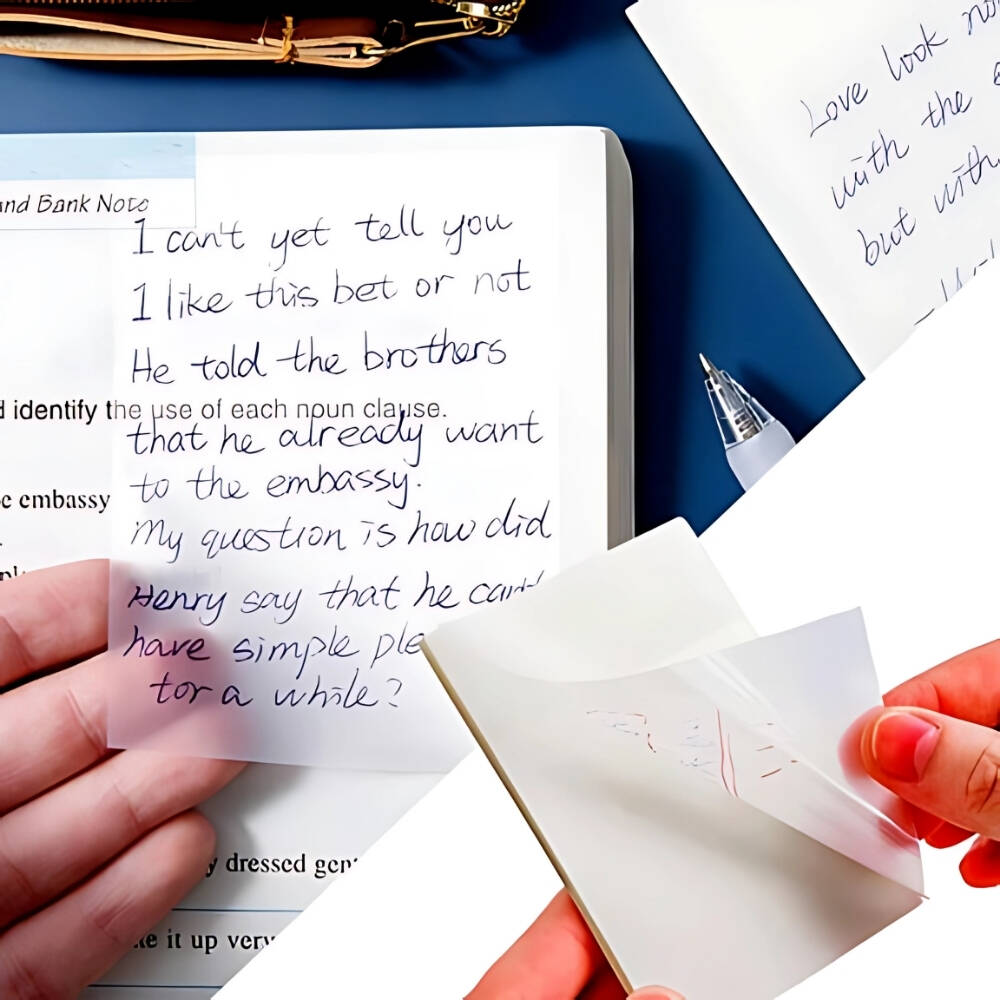 and Bank Note
I can't yet tell you
I like this bet or not
He told the brothers
identify the use of each noun clause.
that he already want
embassy
to the embassy.
My question is how did
Henry say that he can't
have simple ple
for a while?
dressed
it up very
Love look
with the
but with